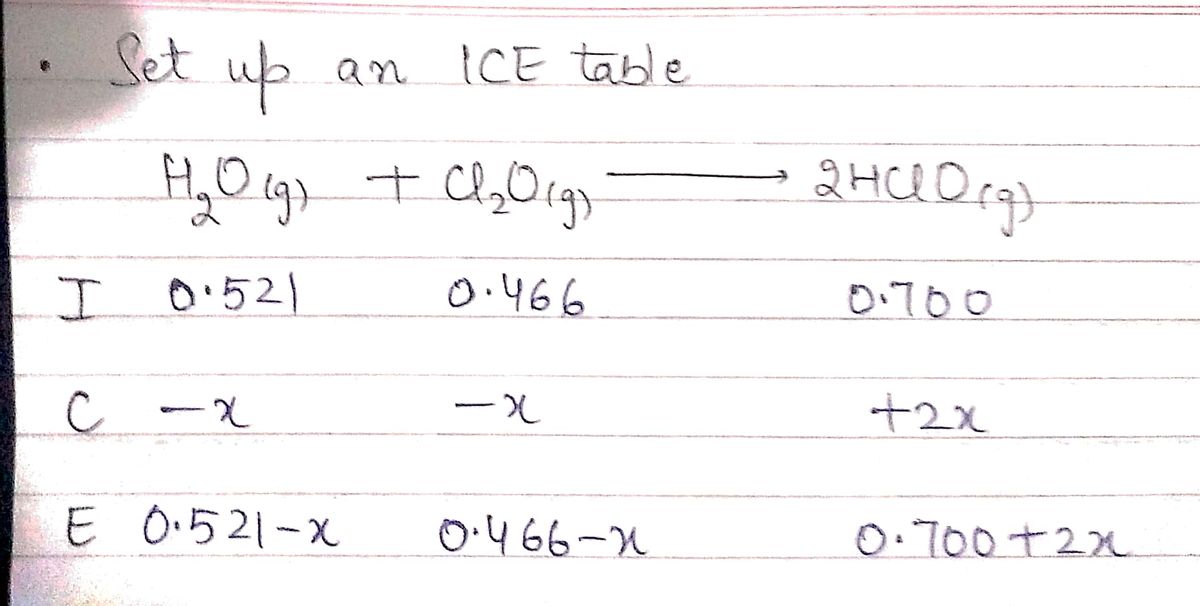 • Set up an ICE table
H₂O(g) + Cl₂O(g) ⟶ 2HClO(g)
I 0.521 0.466 0.700
C -x -x +2x
E 0.521-x 0.466-x 0.700+2x